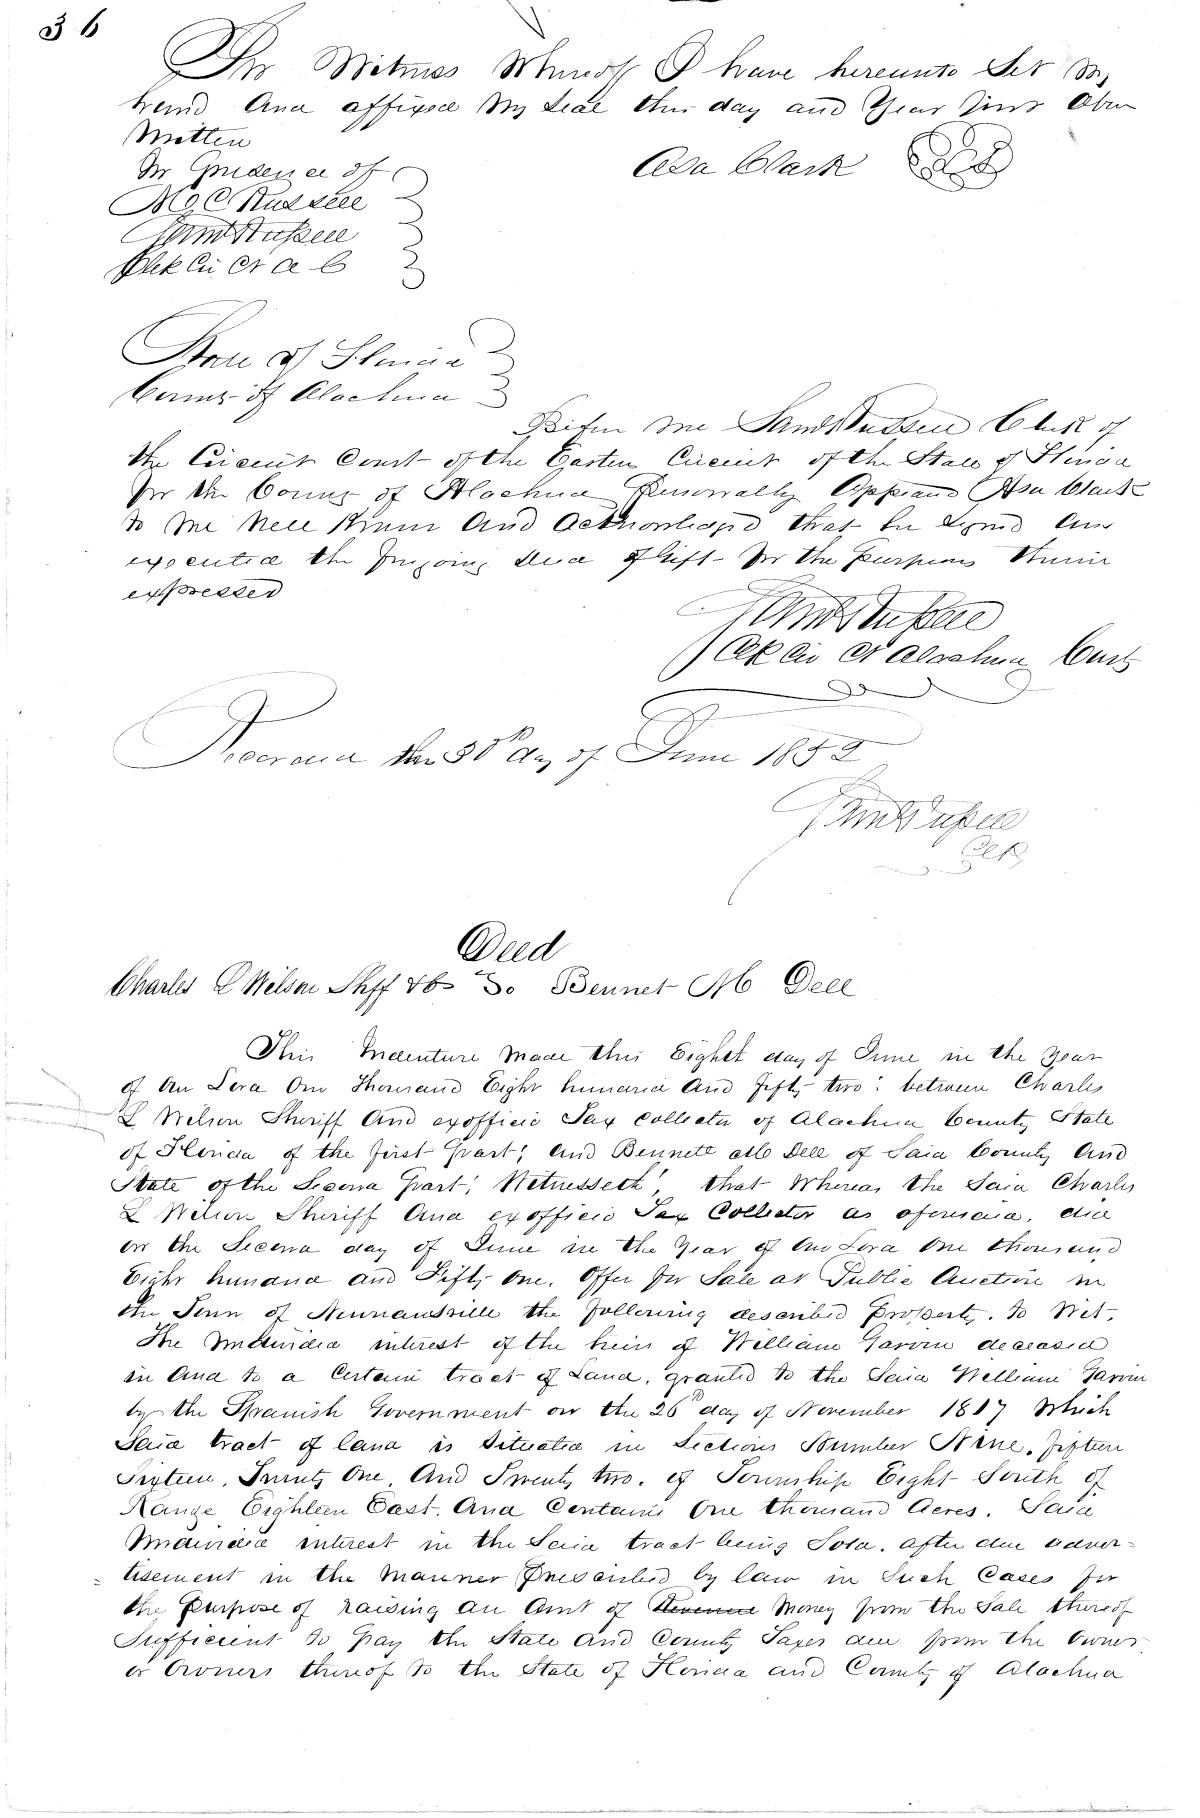 36
In Witness Whereof I have hereunto Set My
hand And affixed My Seal this day and Year first Above
Written
In Presence of
Asa Clark
M C Russell
Saml Russell
Clk Cir Ct A C
State of Florida
County of Alachua
Before me Saml Russell Clerk of
the Circuit Court of the Eastern Circuit of the State of Florida
for the County of Alachua Personally Appeared Asa Clark
to me Well Known And Acknowledged that he Signed And
executed the foregoing deed of Gift for the purposes therein
expressed
Saml Russell
Clk Cir Ct Alachua County
Recorded the 30th day of June 1852
Saml Russell
Clk
Deed
Charles L Wilson Shff &c To Bennet M Dell
This Indenture Made this Eighth day of June in the Year
of Our Lord One Thousand Eight hundred And fifty two: between Charles
L Wilson Sheriff And exofficio Tax Collector of Alachua County State
of Florida of the first part; and Bennett M Dell of Said County And
State of the Second part; Witnesseth, that Whereas the Said Charles
L Wilson Sheriff And exofficio Tax Collector as aforesaid. did
on the Second day of June in the Year of Our Lord One thousand
Eight hundred and Fifty One. Offer for Sale at Public Auction in
the Town of Newnansville the following described Property. to Wit.
The Undivided interest of the heirs of William Garvin deceased
in And to a Certain tract of Land. granted to the Said William Garvin
by the Spanish Government on the 26th day of November 1817 Which
Said tract of land is Situated in Sections Number Nine. fifteen
Sixteen. Twenty One. And Twenty two. of Township Eight South of
Range Eighteen East. And Contains One thousand Acres. Said
Undivided interest in the Said tract being Sold. after due adver-
tisement in the manner Prescribed by law in Such Cases for
the Purpose of raising an Amt of Revenue Money from the Sale thereof
Sufficient to Pay the State and County Taxes due from the Owner
or Owners thereof to the State of Florida and County of Alachua